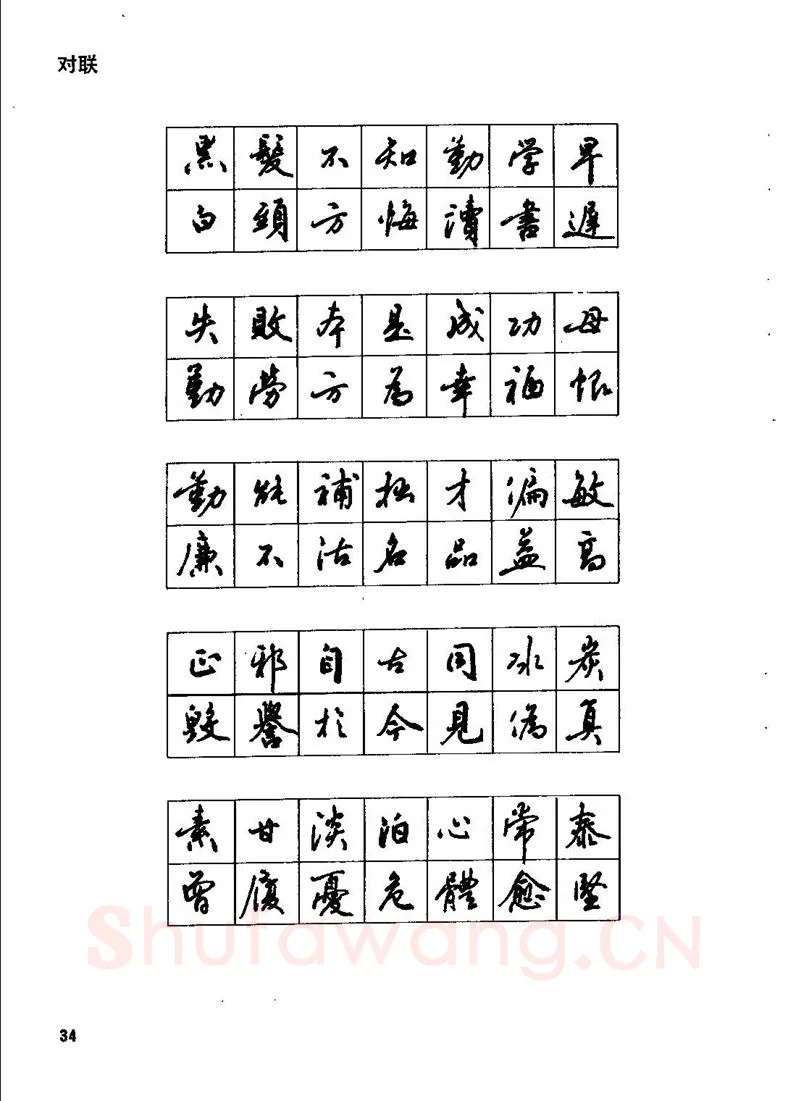 对联
黑髮不知勤学早
白頭方悔讀書遲
失敗本是成功母
勤劳方為幸福根
勤能補拙才偏敏
廉不沽名品益高
正邪自古同冰炭
毀譽於今見偽真
素甘淡泊心常泰
曾履憂危體愈堅
Shufawang.CN
34